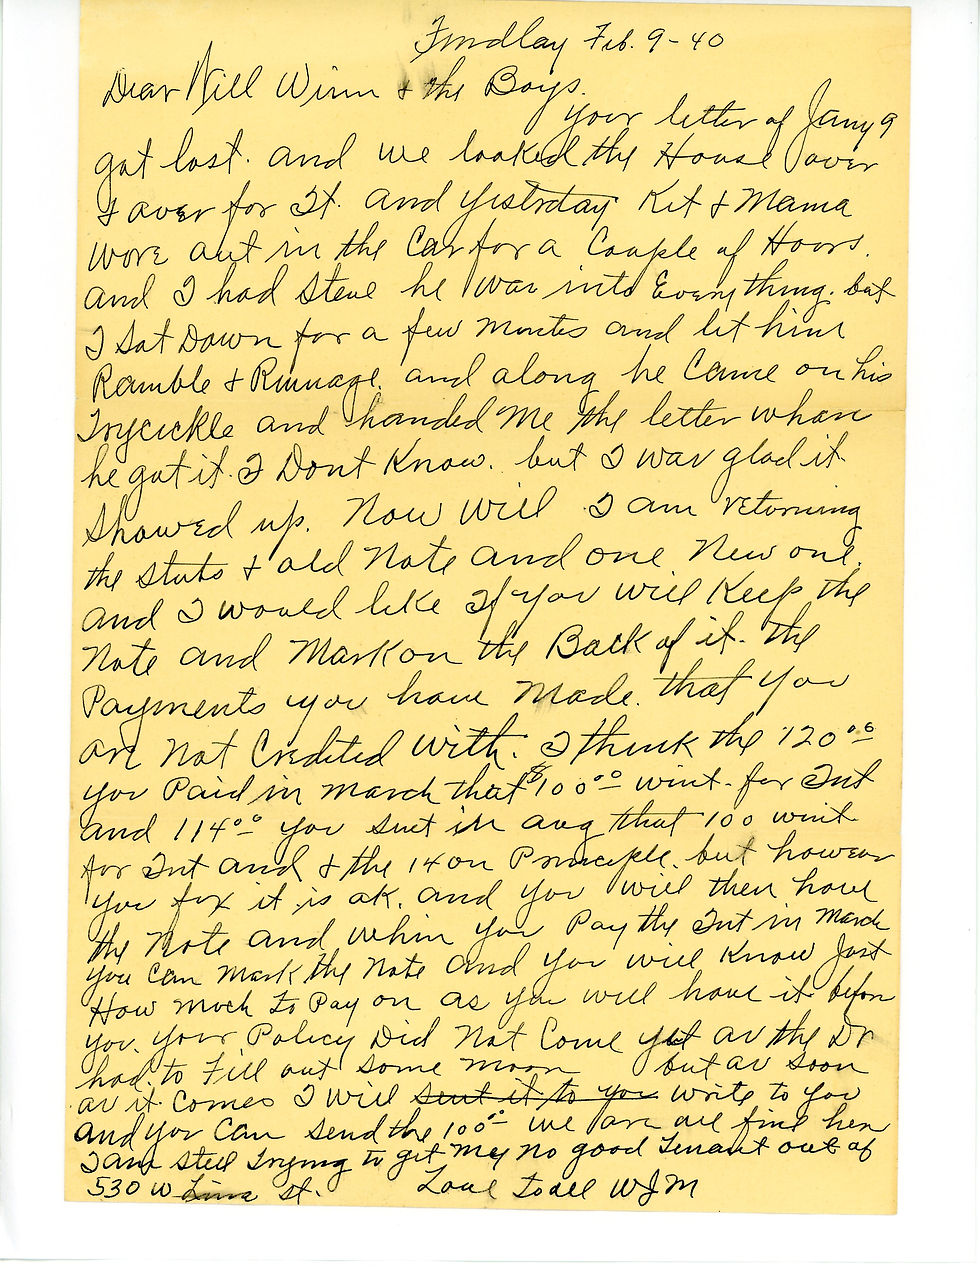 Findlay Feb. 9-40
Dear Will Winn & the Boys.
your letter of Jany 9
got lost. and we looked the House over
& over for It. and yesterday Kit & Mama
wore out in the Car for a Couple of Hoors.
and I had Steve he was into Everything. but
I Sat Down for a few Minutes and let him
Ramble & Rumage. and along he Came on his
Trycickle and handed Me the letter whare
he got it I Dont Know. but I was glad it
Showed up. Now Will I am retorning
the stubs & old Note and one New one.
and I would like If you will Keep the
Note and Mark on the Back of it. the
Payments you have Made. that you
are Not Credited with. I think the 120.00
you Paid in March that $100.00 wint for Int
and 114.00 you sent in aug that 100 wint
for Int and & the 14 on Principle. but however
you fix it is ok. and you will then have
the Note and when you Pay the Int in March
you Can Mark the Note and you will Know Just
How Much to Pay on as you will have it before
you. your Policy Did Not Come yet as the Dr
had to Fill out some moore but as soon
as it Comes I will sent it to you write to you
and you Can send the 100.00 we are all fine here
I am still Trying to get My No good Tenant out of
530 W Lima St. Love To all WJM